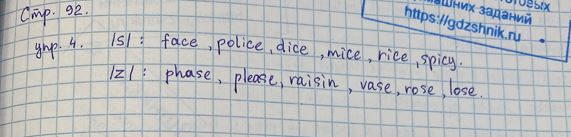 Стр. 92.
упр. 4. /s/: face, police, dice, mice, rice, spicy.
/z/: phase, please, raisin, vase, rose, lose.
домашних заданий
https://gdzshnik.ru